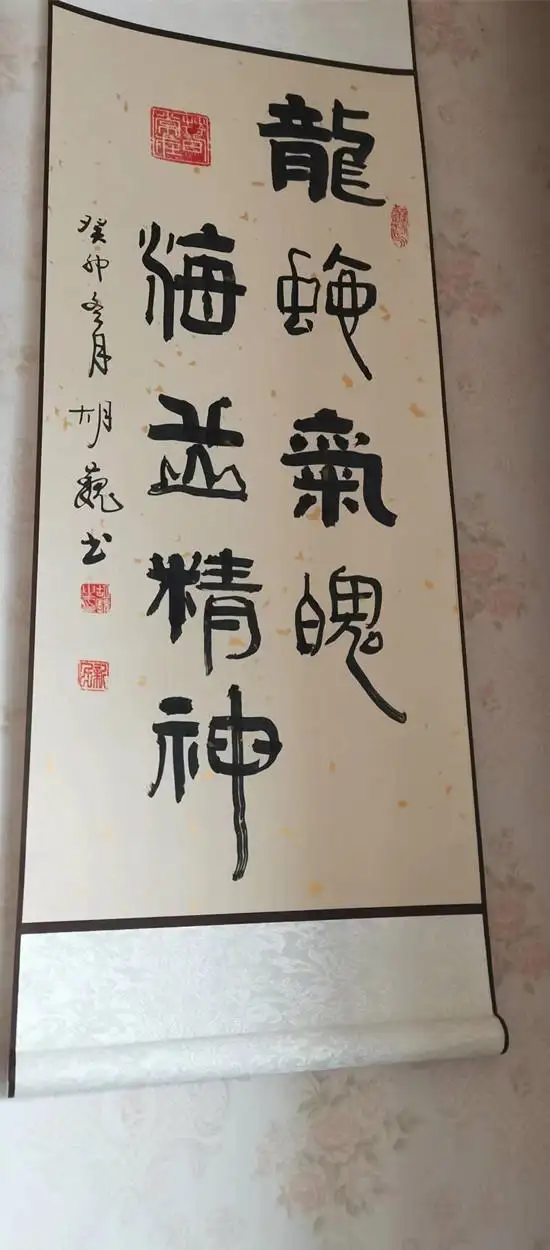 龍氣魄
海岳精神
癸卯冬月胡巍书